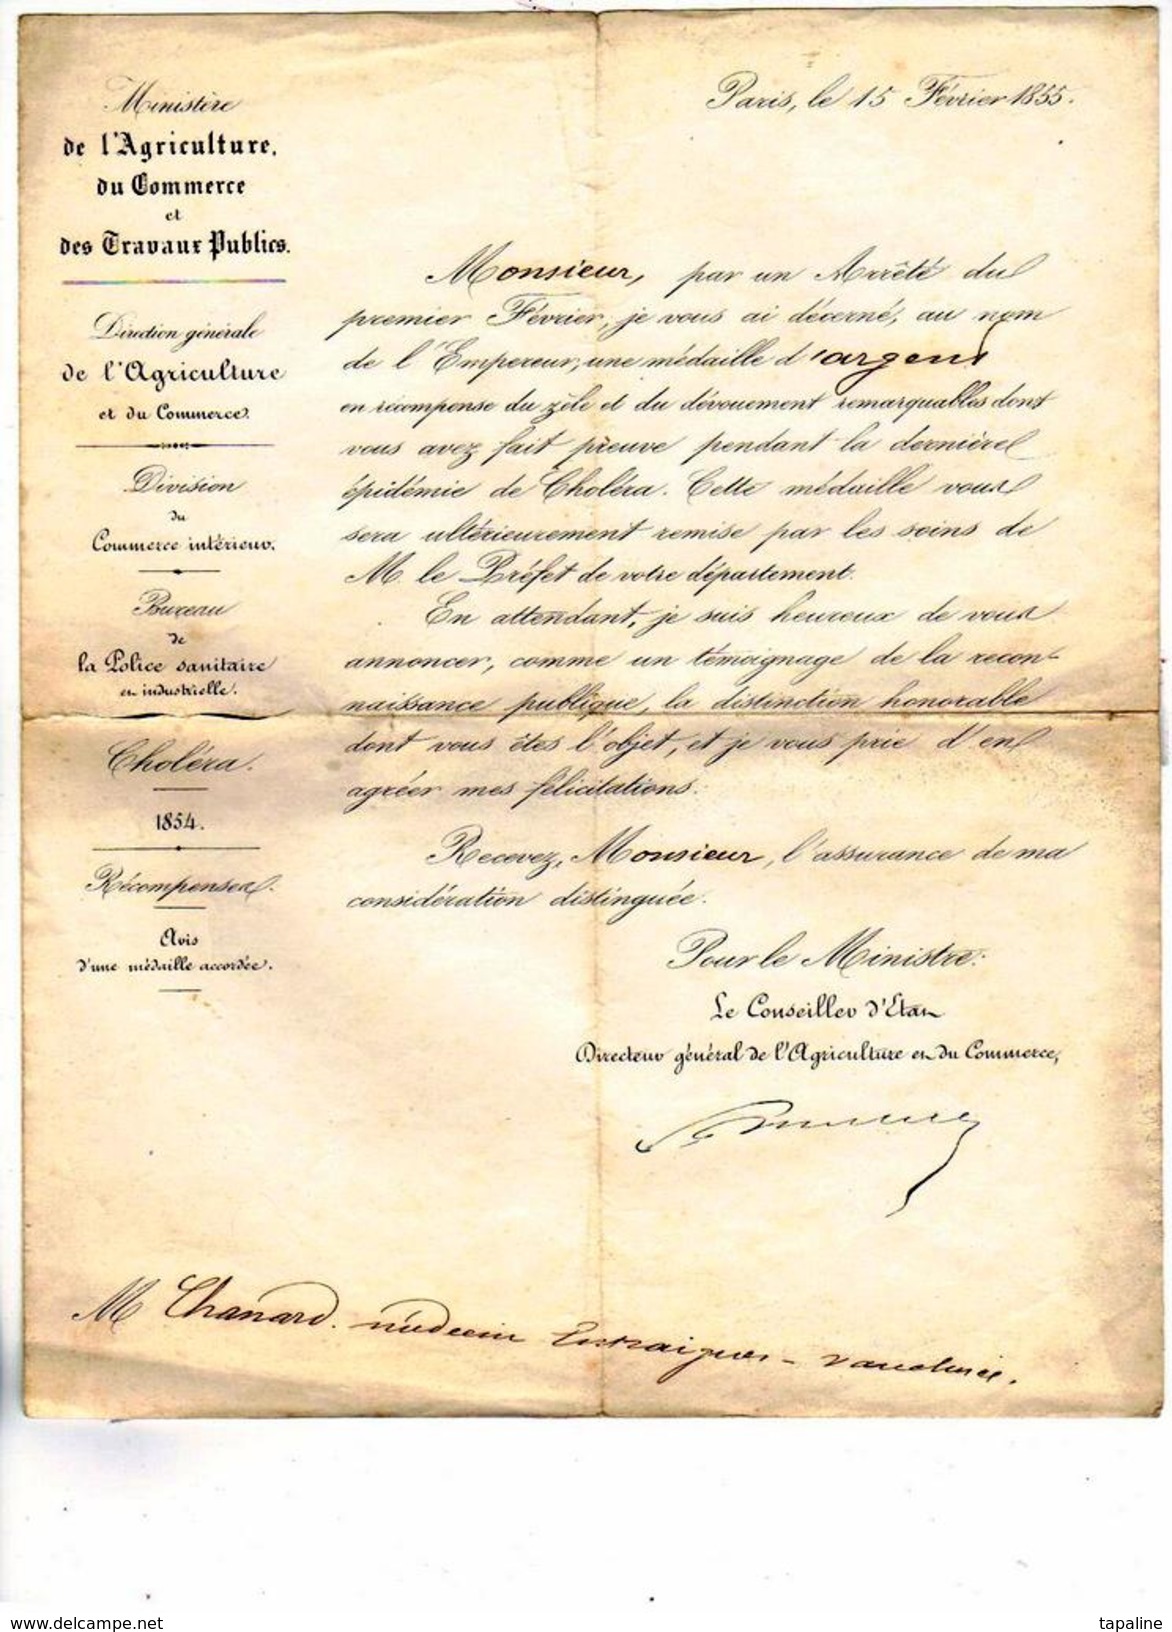 Ministère
de l'Agriculture,
du Commerce
et
des Travaux Publics.
Direction générale
de l'Agriculture
et du Commerce.
Division
du
Commerce intérieur.
Bureau
de
la Police sanitaire
et industrielle.
Choléra.
1854.
Récompenses.
Avis
d'une médaille accordée.
Paris, le 15 Février 1855.
Monsieur, par un Arrêté du
premier Février, je vous ai décerné, au nom
de l'Empereur, une médaille d'argent
en récompense du zèle et du dévouement remarquables dont
vous avez fait preuve pendant la dernière
épidémie de Choléra. Cette médaille vous
sera ultérieurement remise par les soins de
M. le Préfet de votre département.
En attendant, je suis heureux de vous
annoncer, comme un témoignage de la recon-
naissance publique, la distinction honorable
dont vous êtes l'objet, et je vous prie d'en
agréer mes félicitations.
Recevez, Monsieur, l'assurance de ma
considération distinguée.
Pour le Ministre:
Le Conseiller d'Etat
Directeur général de l'Agriculture et du Commerce,
M Chanard. médecin Entraigues - Vaucluse.
www.delcampe.net
tapaline